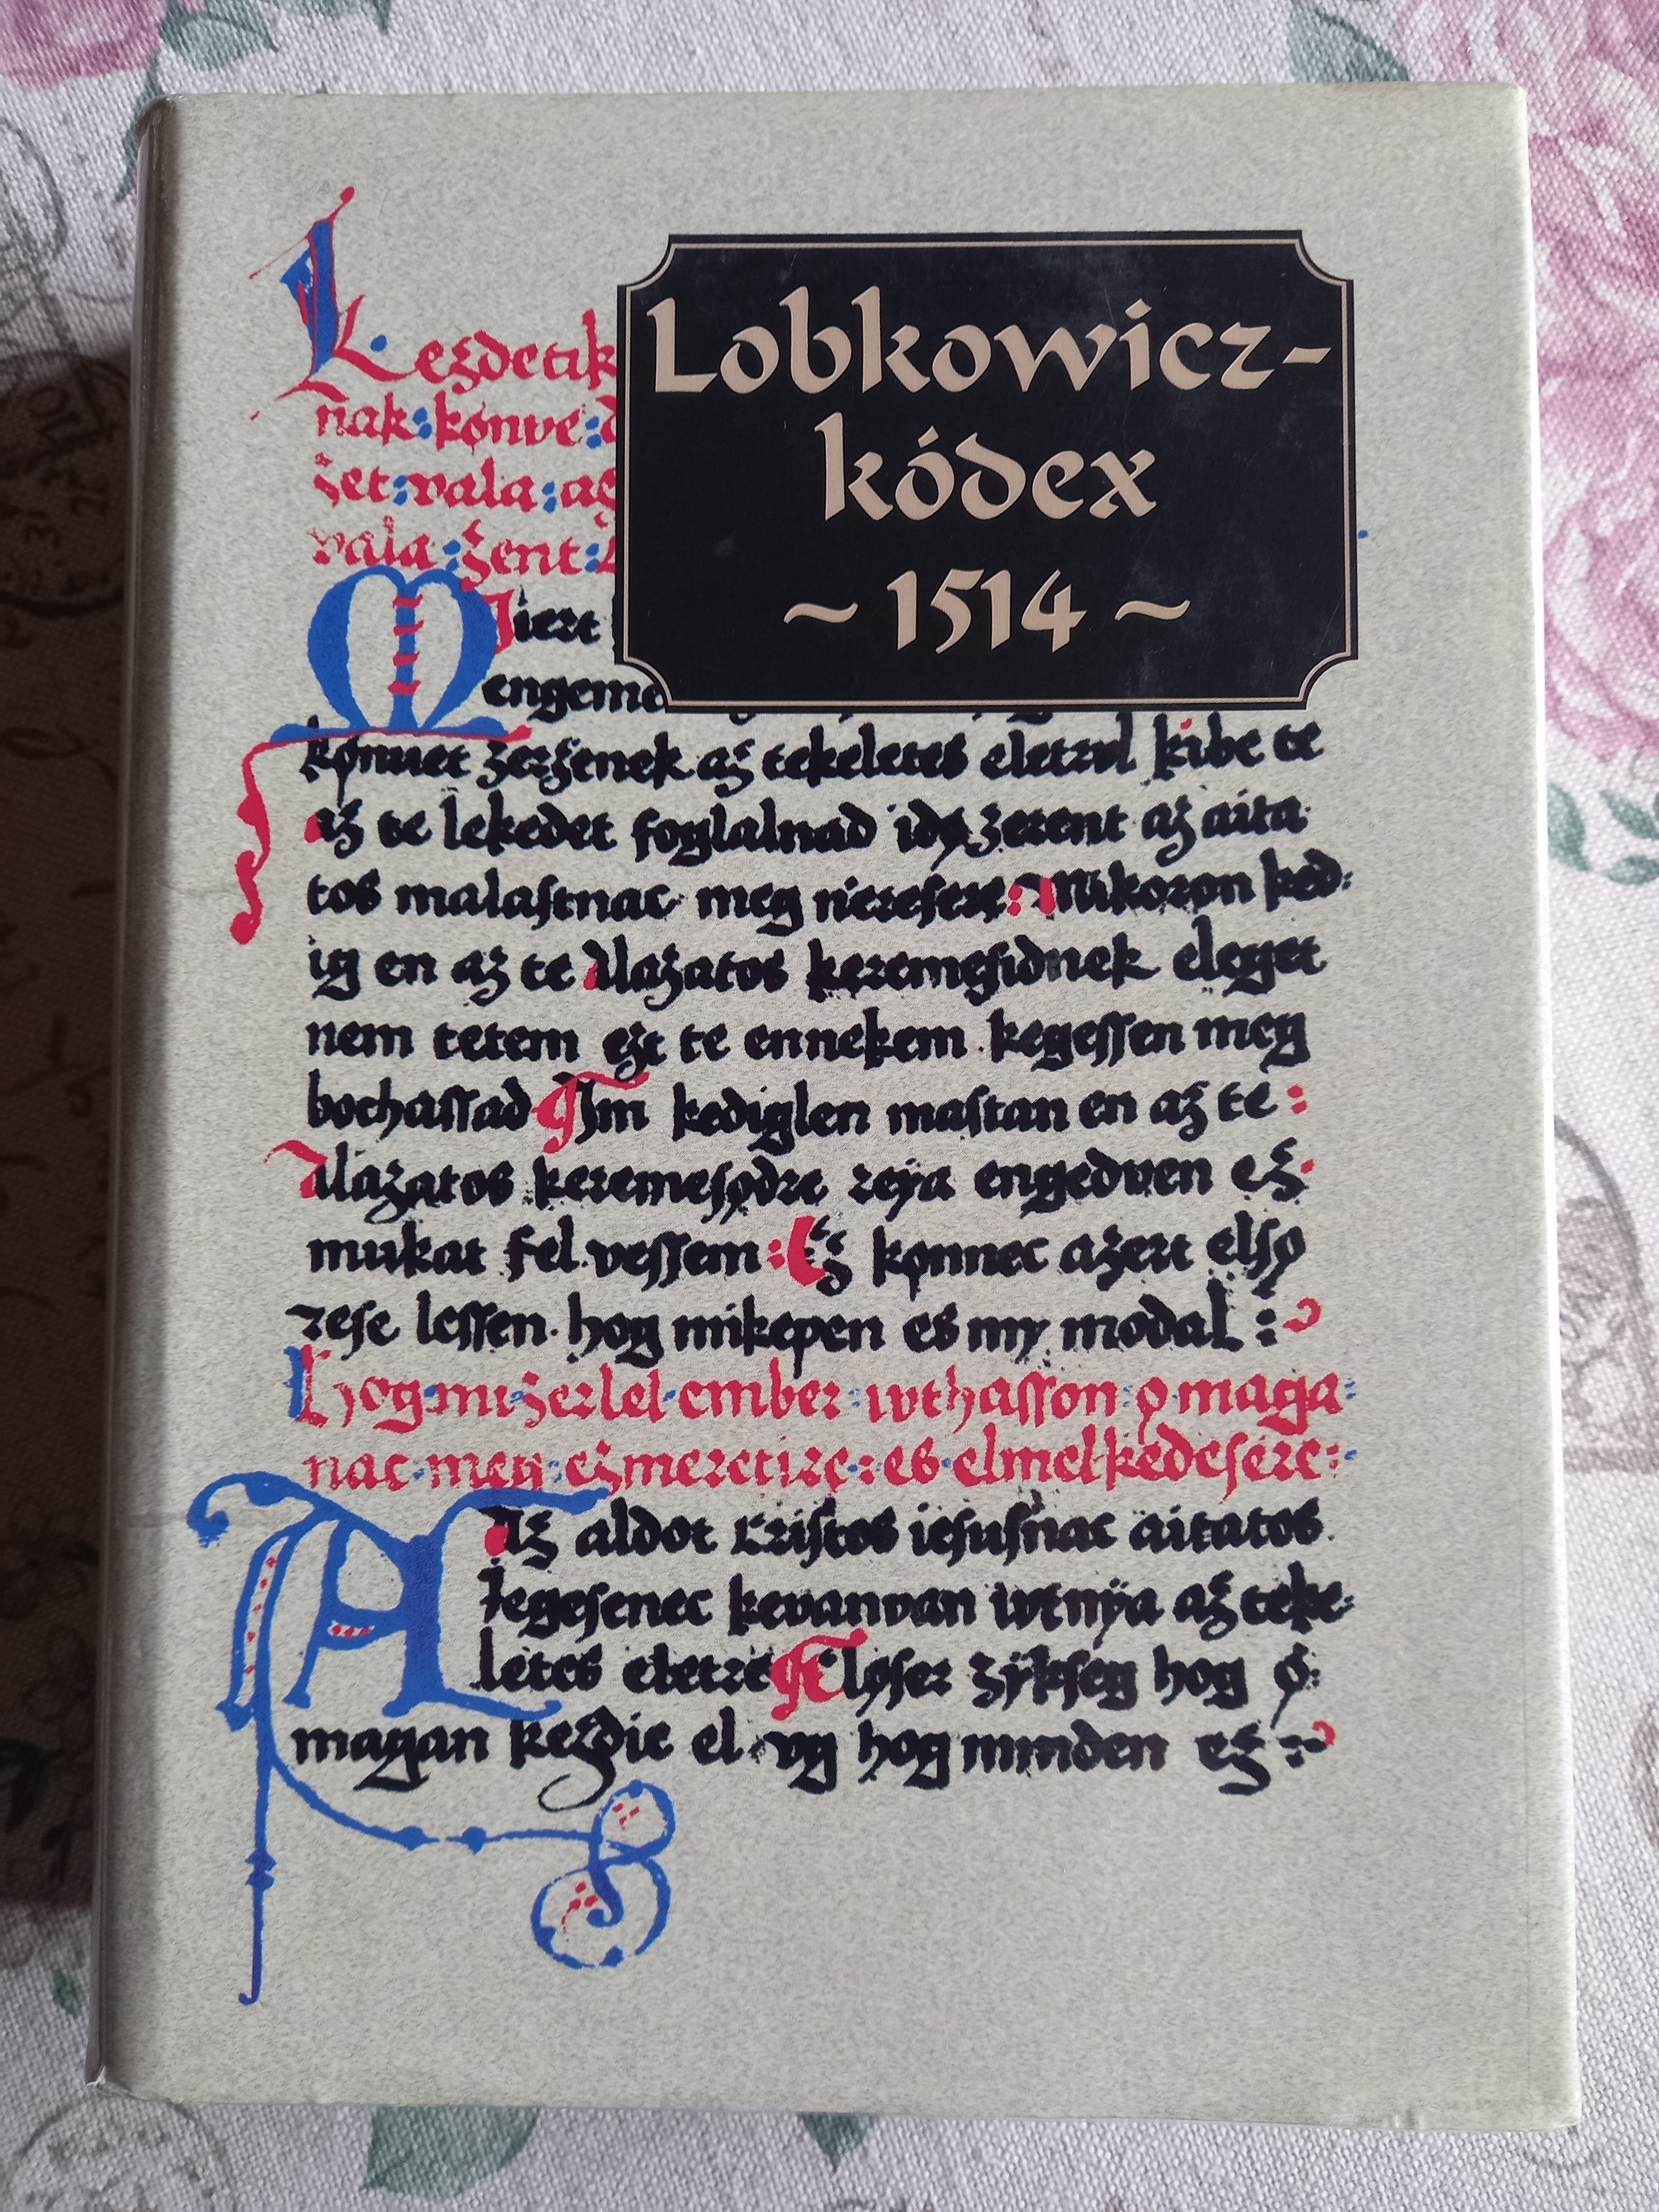 Lobkowicz-
kódex
~ 1514 ~
Kezdetik
nak : kønve :
zet : vala : az
vala : zent :
Miert
engeme
kønuet zerzenek az tekeletes eletrul kibe te
az te lekedet foglalnad idø zerent az aita
tos malaſtnac meg nıereſere : Mikoron ked:
ig en az te Alazatos keremeſidnek eleget
nem tetem ezt te ennekem kegeſſen meg
bochaſſad Im kediglen maſtan en az te :
Alazatos keremeſødre reÿa engedven ez
mukat fel veſſem : Ez kønnec azert elſø
reſe leſſen hog mikepen es my modal :
Hog mi zerlel ember iuthaſſon ø maga
nac meg ezmeretire : es elmelkedeſere :
Az aldot criſtos ieſuſnac aitatos
Iegeſenec kevanvan iutnÿa az teke:
letes eletre Eløſer zÿkſeg hog ø:
magan kezdie el vg hog minden ez :